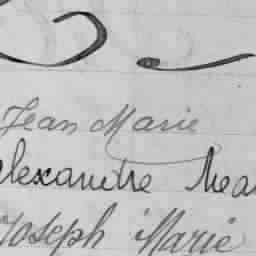 Jean Marie
alexandre Mar
Joseph Marie